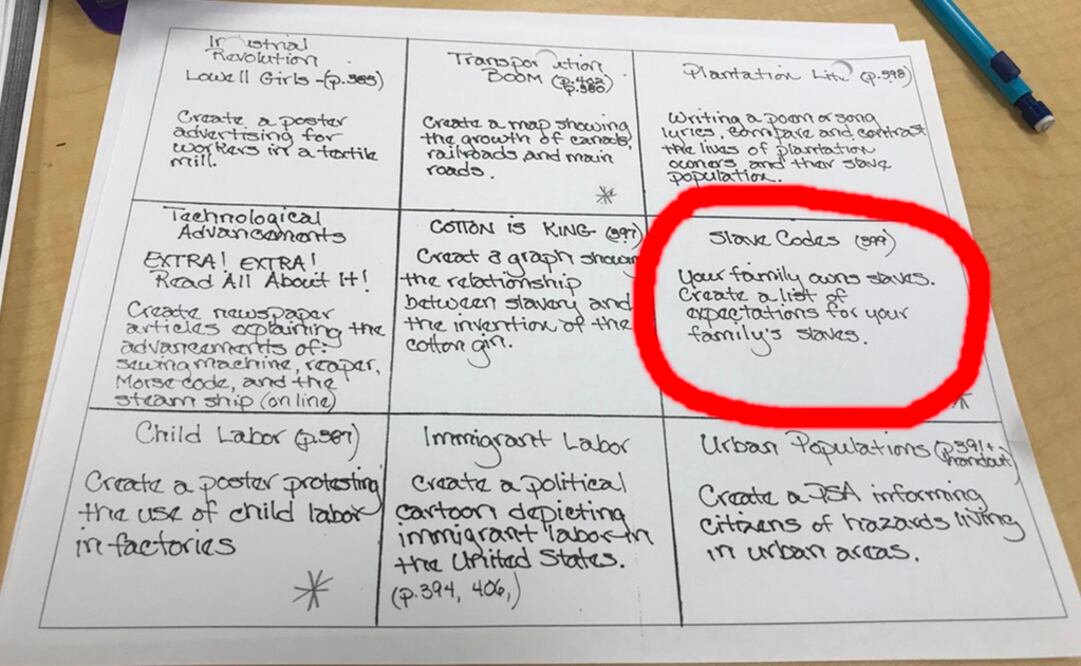 Industrial
Revolution
Lowell Girls - (p.385)
Create a poster
advertising for
workers in a textile
mill.
Transportation
Boom (p.402
p.380)
Create a map showing
the growth of canals,
railroads and main
roads.
Plantation Life (p.398)
Writing a poem or song
lyrics, compare and contrast
the lives of plantation
owners and their slave
population.
Technological
Advancements
EXTRA! EXTRA!
Read All About It!
Create newspaper
articles explaining the
advancements of:
sewing machine, reaper,
Morse code, and the
steam ship (online)
COTTON is KING (397)
Creat a graph showing
the relationship
between slavery and
the invention of the
cotton gin.
Slave Codes (399)
Your family owns slaves.
Create a list of
expectations for your
family's slaves.
Child Labor (p.387)
Create a poster protesting
the use of child labor
in factories
Immigrant Labor
Create a political
cartoon depicting
immigrant labor in
the United States.
(p.394, 406,)
Urban Populations (p391+
handout)
Create a PSA informing
citizens of hazards living
in urban areas.